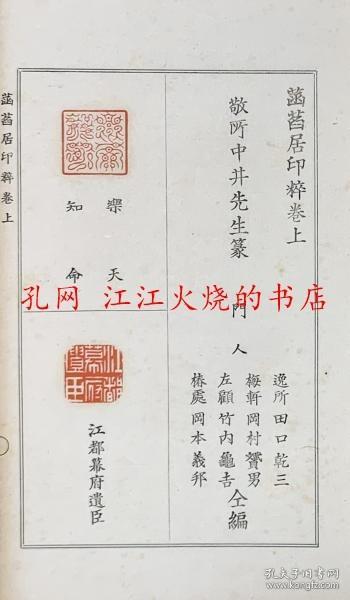 菡萏居印粹卷上
敬所中井先生篆
門人
逸所田口乾三
梅軒岡村賛男
左顧竹内龜吉
椿處岡本義邦
仝編
樂天
知命
江都幕府遺臣
江都幕府遺臣
菡萏居印粹卷上
孔网 江江火烧的书店
孔夫子旧书网